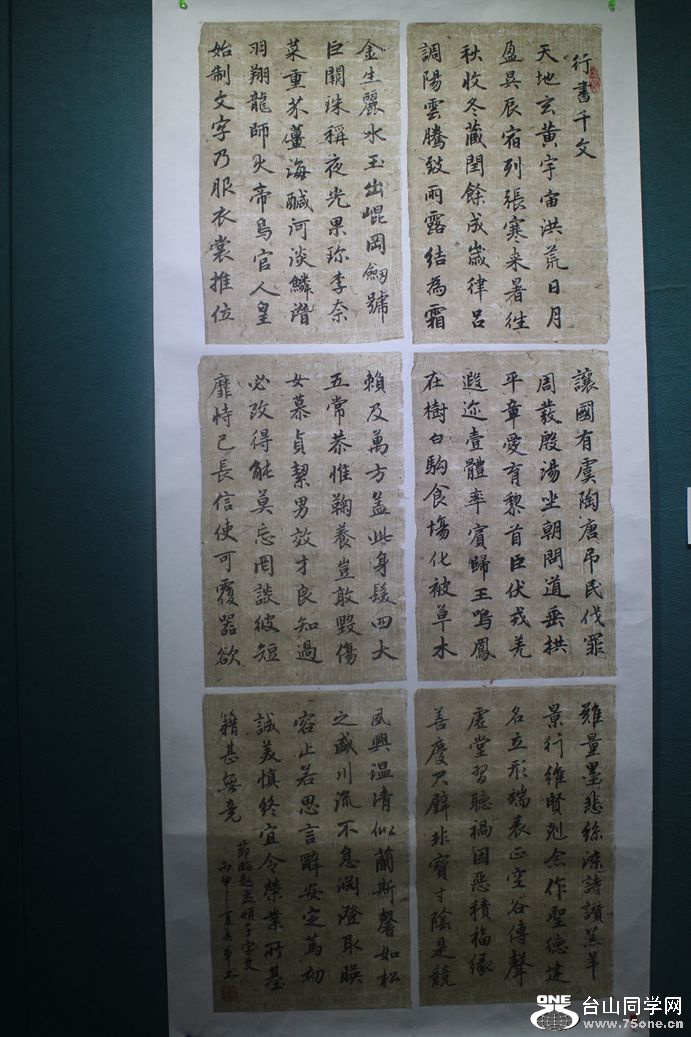 行書千文
天地玄黃宇宙洪荒日月
盈昃辰宿列張寒來暑往
秋收冬藏閏餘成歲律呂
調陽雲騰致雨露結為霜
金生麗水玉出崐岡劒號
巨闕珠稱夜光果珍李柰
菜重芥薑海鹹河淡鱗潛
羽翔龍師火帝鳥官人皇
始制文字乃服衣裳推位
讓國有虞陶唐弔民伐罪
周發殷湯坐朝問道垂拱
平章愛育黎首臣伏戎羌
遐邇壹體率賓歸王鳴鳳
在樹白駒食場化被草木
賴及萬方蓋此身髮四大
五常恭惟鞠養豈敢毀傷
女慕貞絜男效才良知過
必改得能莫忘罔談彼短
靡恃己長信使可覆器欲
難量墨悲絲染詩讚羔羊
景行維賢剋念作聖德建
名立形端表正空谷傳聲
虛堂習聽禍因惡積福緣
善慶尺璧非寶寸陰是競
夙興溫清似蘭斯馨如松
之盛川流不息淵澄取暎
容止若思言辭安定篤初
誠美慎終宜令榮業所基
籍甚無竟
節臨趙孟頫千字文
丙申夏
ONE 台山同学网
www.75one.cn